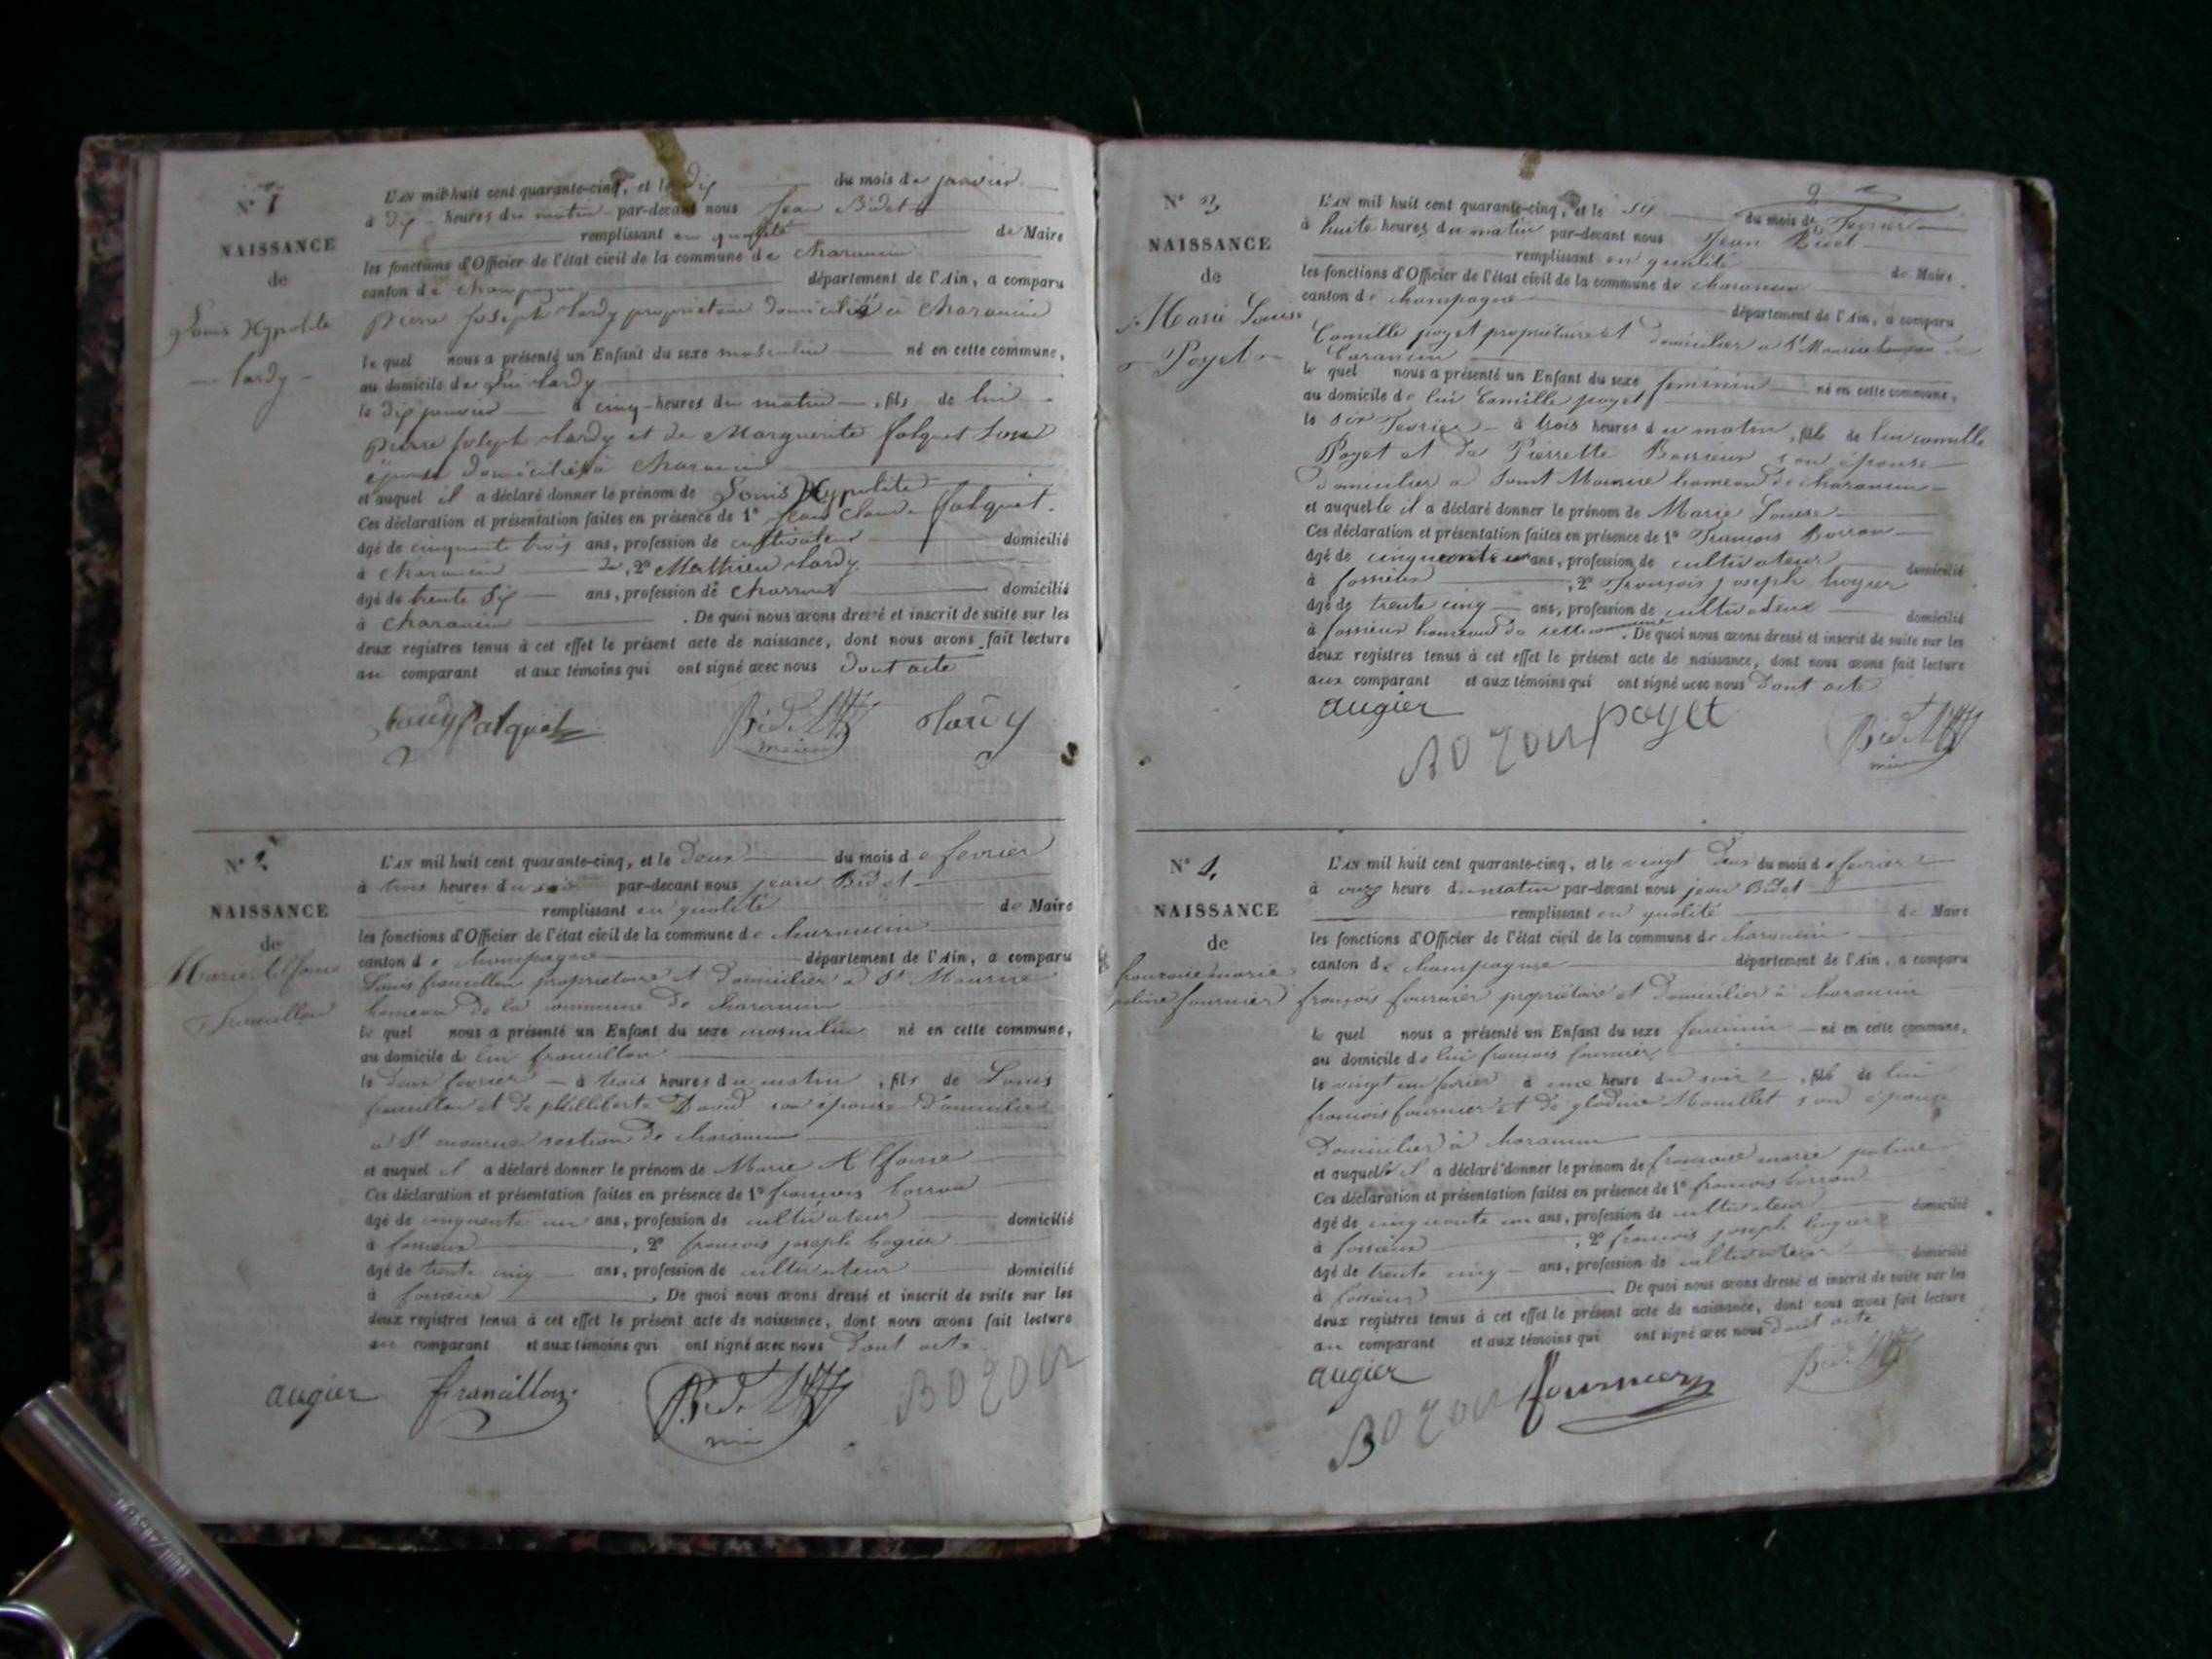 N° 1
NAISSANCE
de
Louis Hypolite
Lardy
L'AN mil huit cent quarante-cinq, et le dix du mois de janvier
à dix heures du matin par-devant nous Jean Bidet
remplissant en qualité de Maire
les fonctions d'Officier de l'état civil de la commune de Charancin
canton de Champagne département de l'Ain, a comparu
Pierre Joseph Lardy propriétaire domicilié à Charancin
lequel nous a présenté un Enfant du sexe masculin né en cette commune,
au domicile de lui Lardy
le dix janvier à cinq heures du matin, fils de lui
Pierre Joseph Lardy et de Marguerite falquet son
épouse domiciliés à Charancin
et auquel il a déclaré donner le prénom de Louis Hypolite
Ces déclaration et présentation faites en présence de 1° Jean Claude falquet
âgé de cinquante trois ans, profession de cultivateur domicilié
à Charancin 2° Mathieu Lardy
âgé de trente six ans, profession de Charron domicilié
à Charancin. De quoi nous avons dressé et inscrit de suite sur les
deux registres tenus à cet effet le présent acte de naissance, dont nous avons fait lecture
au comparant et aux témoins qui ont signé avec nous dont acte
Lardy falquet Bidet Lardy
maire
N° 2
NAISSANCE
de
Marie Alfonse
Francillon
L'AN mil huit cent quarante-cinq, et le deux du mois de fevrier
à trois heures du soir par-devant nous jean Bidet
remplissant en qualité de Maire
les fonctions d'Officier de l'état civil de la commune de Charancin
canton de Champagne département de l'Ain, a comparu
Louis francillon propriétaire et domicilier à St Maurice
hameau de la commune de Charancin
lequel nous a présenté un Enfant du sexe masculin né en cette commune,
au domicile de lui francillon
le deux fevrier à trois heures du matin, fils de Louis
francillon et de philliberte David son épouse domicilie
a St maurice section de Charancin
et auquel il a déclaré donner le prénom de Marie Alfonse
Ces déclaration et présentation faites en présence de 1° françois
âgé de cinquante un ans, profession de cultivateur domicilié
à fossieux, 2° françois joseph
âgé de trente cinq ans, profession de cultivateur domicilié
à fossieux. De quoi nous avons dressé et inscrit de suite sur les
deux registres tenus à cet effet le présent acte de naissance, dont nous avons fait lecture
au comparant et aux témoins qui ont signé avec nous dont acte
augier francillon Bidet Bozon
N° 3
NAISSANCE
de
Marie Louise
Poyet
2
L'AN mil huit cent quarante-cinq, et le six du mois de Fevrier
à huite heures du matin par-devant nous Jean Bidet
remplissant en qualité de Maire
les fonctions d'Officier de l'état civil de la commune de Charancin
canton de Champagne département de l'Ain, a comparu
Camille poyet propriétaire et domicilier a St Maurice hameau de
Carancin
lequel nous a présenté un Enfant du sexe feminin né en cette commune,
au domicile de lui Camille poyet
le six Fevrier à trois heures du matin, fille de lui camille
Poyet et de Pierrette son épouse
domicilier a Saint Maurice hameau de Charancin
et auquelle il a déclaré donner le prénom de Marie Louise
Ces déclaration et présentation faites en présence de 1° François
âgé de cinquante un ans, profession de cultivateur domicilié
à fossieux, 2° François joseph
âgé de trente cinq ans, profession de cultivateur domicilié
à fossieux hameau de cette commune. De quoi nous avons dressé et inscrit de suite sur les
deux registres tenus à cet effet le présent acte de naissance, dont nous avons fait lecture
aux comparant et aux témoins qui ont signé avec nous dont acte
augier
Bozon poyet Bidet
maire
N° 4
NAISSANCE
de
françoise marie
poline fournier
L'AN mil huit cent quarante-cinq, et le vingt deux du mois de fevrier
à onze heure du matin par-devant nous jean Bidet
remplissant en qualité de Maire
les fonctions d'Officier de l'état civil de la commune de Charancin
canton de Champagne département de l'Ain, a comparu
françois fournier propriétaire et domicilier à Charancin
lequel nous a présenté un Enfant du sexe feminin né en cette commune,
au domicile de lui françois fournier
le vingt un fevrier à une heure du soir, fille de lui
françois fournier et de glodine Monillet son épouse
domicilier à Charancin
et auquelle il a déclaré donner le prénom de françoise marie poline
Ces déclaration et présentation faites en présence de 1° françois
âgé de cinquante un ans, profession de cultivateur domicilié
à fossieux, 2° françois joseph
âgé de trente cinq ans, profession de cultivateur domicilié
à fossieux. De quoi nous avons dressé et inscrit de suite sur les
deux registres tenus à cet effet le présent acte de naissance, dont nous avons fait lecture
au comparant et aux témoins qui ont signé avec nous dont acte
augier
Bozon fournier Bidet